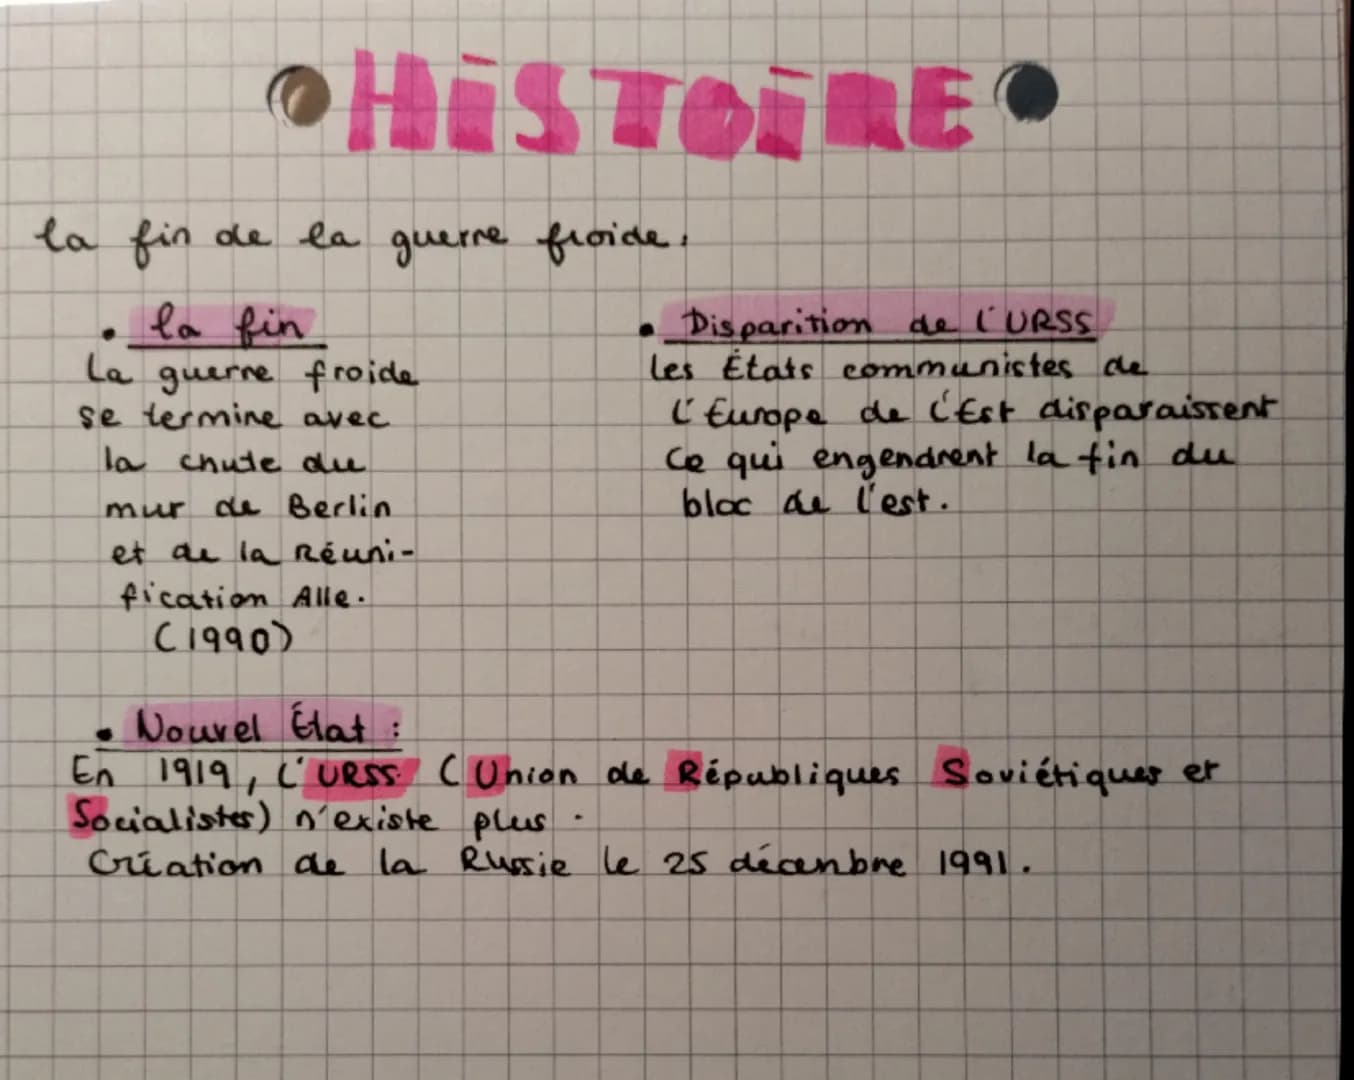 HiSTOiRE
la fin de la guerre froide.
• la fin
La guerre froide
se termine avec
la chute du
mur de Berlin
et de la Réuni-
fication Alle.
(1990)
• Disparition de l'URSS
Les États communistes de
l'Europe de l'Est disparaissent
Ce qui engendrent la fin du
bloc de l'est.
• Nouvel État :
En 1919, l'URSS (Union de Républiques Soviétiques et
Socialistes) n'existe plus.
Création de la Russie le 25 décembre 1991.